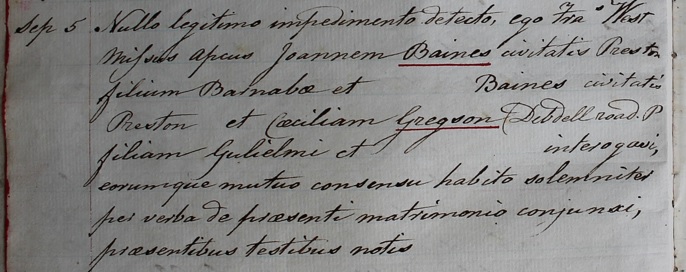 Sep 5 Nullo legitimo impedimento detecto, ego Fra. West
Misus Apcus Joannem Baines civitatis Prest
filium Barnabæ et Baines civitatis
Preston et Cæciliam Gregson road. P
filiam Gulielmi et interogavi,
eorumque mutuo consensu habito solemniter
per verba de præsenti matrimonio conjunxi,
præsentibus testibus notis